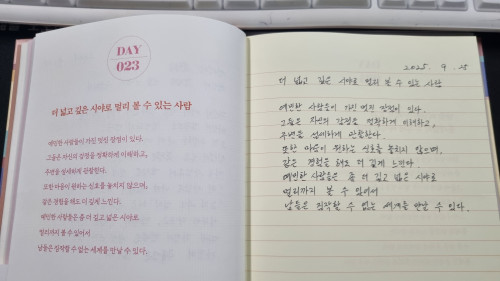 DAY
023
더 넓고 깊은 시야로 멀리 볼 수 있는 사람
예민한 사람들이 가진 멋진 장점이 있다.
그들은 자신의 감정을 명확하게 이해하고,
주변을 섬세하게 관찰한다.
또한 마음이 원하는 신호를 놓치지 않으며,
같은 경험을 해도 더 깊게 느낀다.
예민한 사람들은 좀 더 깊고 넓은 시야로
멀리까지 볼 수 있어서
남들은 짐작할 수 없는 세계를 만날 수 있다.
2025. 9. 15
더 넓고 깊은 시야로 멀리 볼 수 있는 사람
예민한 사람들이 가진 멋진 장점이 있다.
그들은 자신의 감정을 명확하게 이해하고,
주변을 섬세하게 관찰한다.
또한 마음이 원하는 신호를 놓치지 않으며,
같은 경험을 해도 더 깊게 느낀다.
예민한 사람들은 좀 더 깊고 넓은 시야로
멀리까지 볼 수 있어서
남들은 짐작할 수 없는 세계를 만날 수 있다.